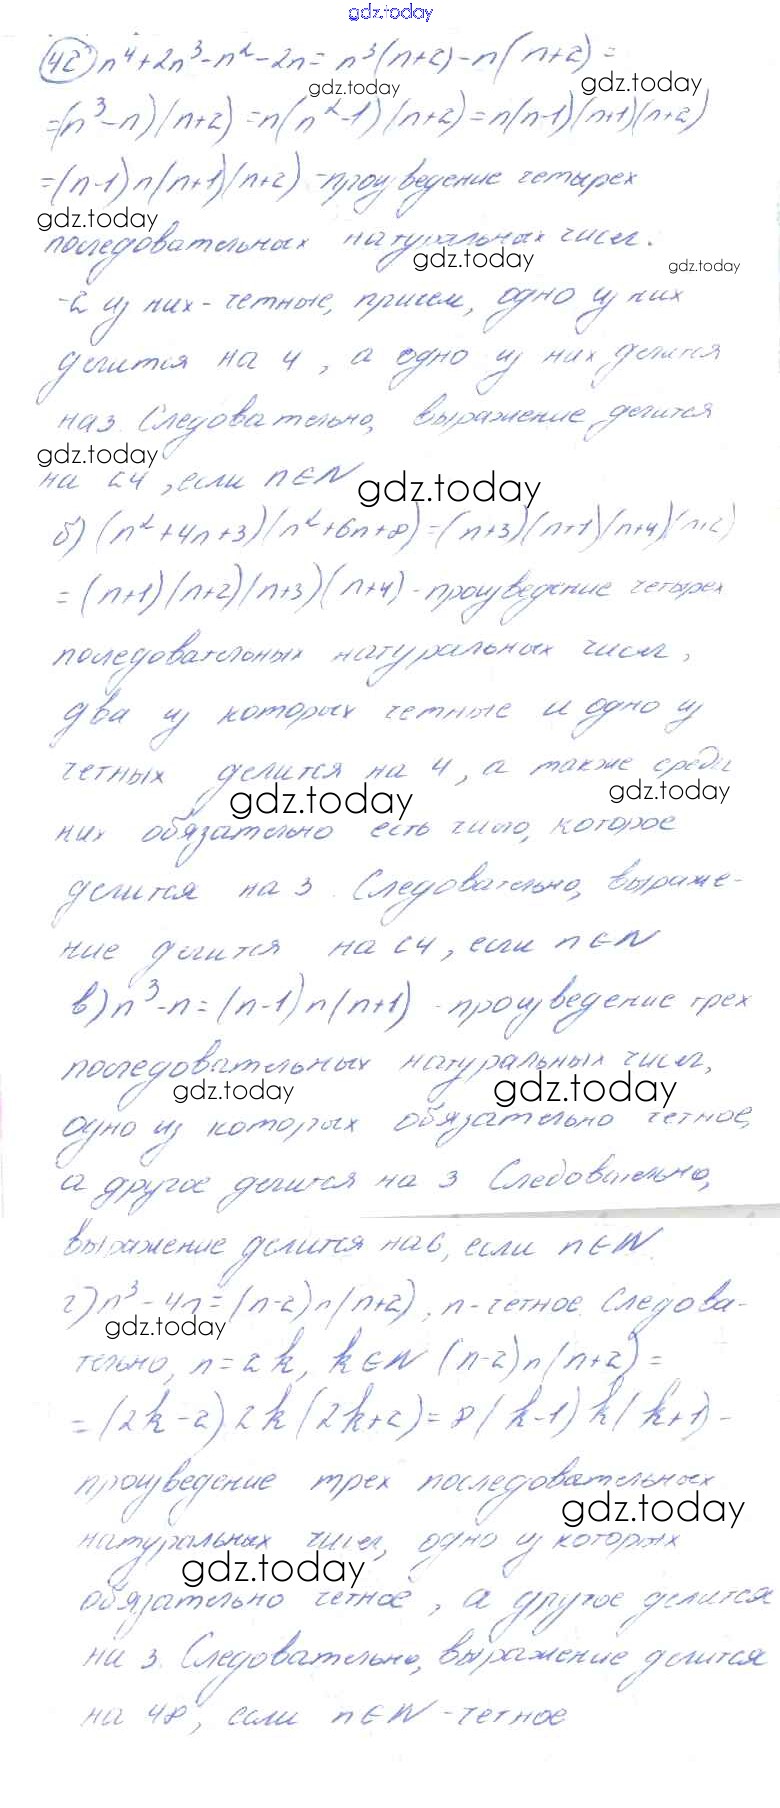 gdz.today
42) n⁴+2n³-n²-2n= n³(n+2)-n(n+2)=
gdz.today gdz.today
=(n³-n)(n+2)=n(n²-1)(n+2)=n(n-1)(n+1)(n+2)
=(n-1)n(n+1)(n+2) -произведение четырех
gdz.today
последовательных натуральных чисел.
gdz.today gdz.today
-2 из них - четные, причем, одно из них
делится на 4, а одно из них делится
на 3. Следовательно, выражение делится
gdz.today
на 24, если n∈N
gdz.today
б) (n²+4n+3)(n²+6n+8)=(n+3)(n+1)(n+4)(n+2)
=(n+1)(n+2)(n+3)(n+4) - произведение четырех
последовательных натуральных чисел,
два из которых четные и одно из
четных делится на 4, а также среди
gdz.today gdz.today
них обязательно есть число, которое
делится на 3. Следовательно, выраже-
ние делится на 24, если n∈N
в) n³-n=(n-1)n(n+1) - произведение трех
последовательных натуральных чисел,
gdz.today gdz.today
одно из которых обязательно четное,
а другое делится на 3 Следовательно,
выражение делится на 6, если n∈N.
г) n³-4n=(n-2)n(n+2), n-четное. Следова-
gdz.today
тельно, n=2k, k∈N (n-2)n(n+2)=
=(2k-2)2k(2k+2)=8(k-1)k(k+1)-
произведение трех последовательных
gdz.today
натуральных чисел, одно из которых
gdz.today
обязательно четное, а другое делится
на 3. Следовательно, выражение делится
на 48, если n∈N -четное